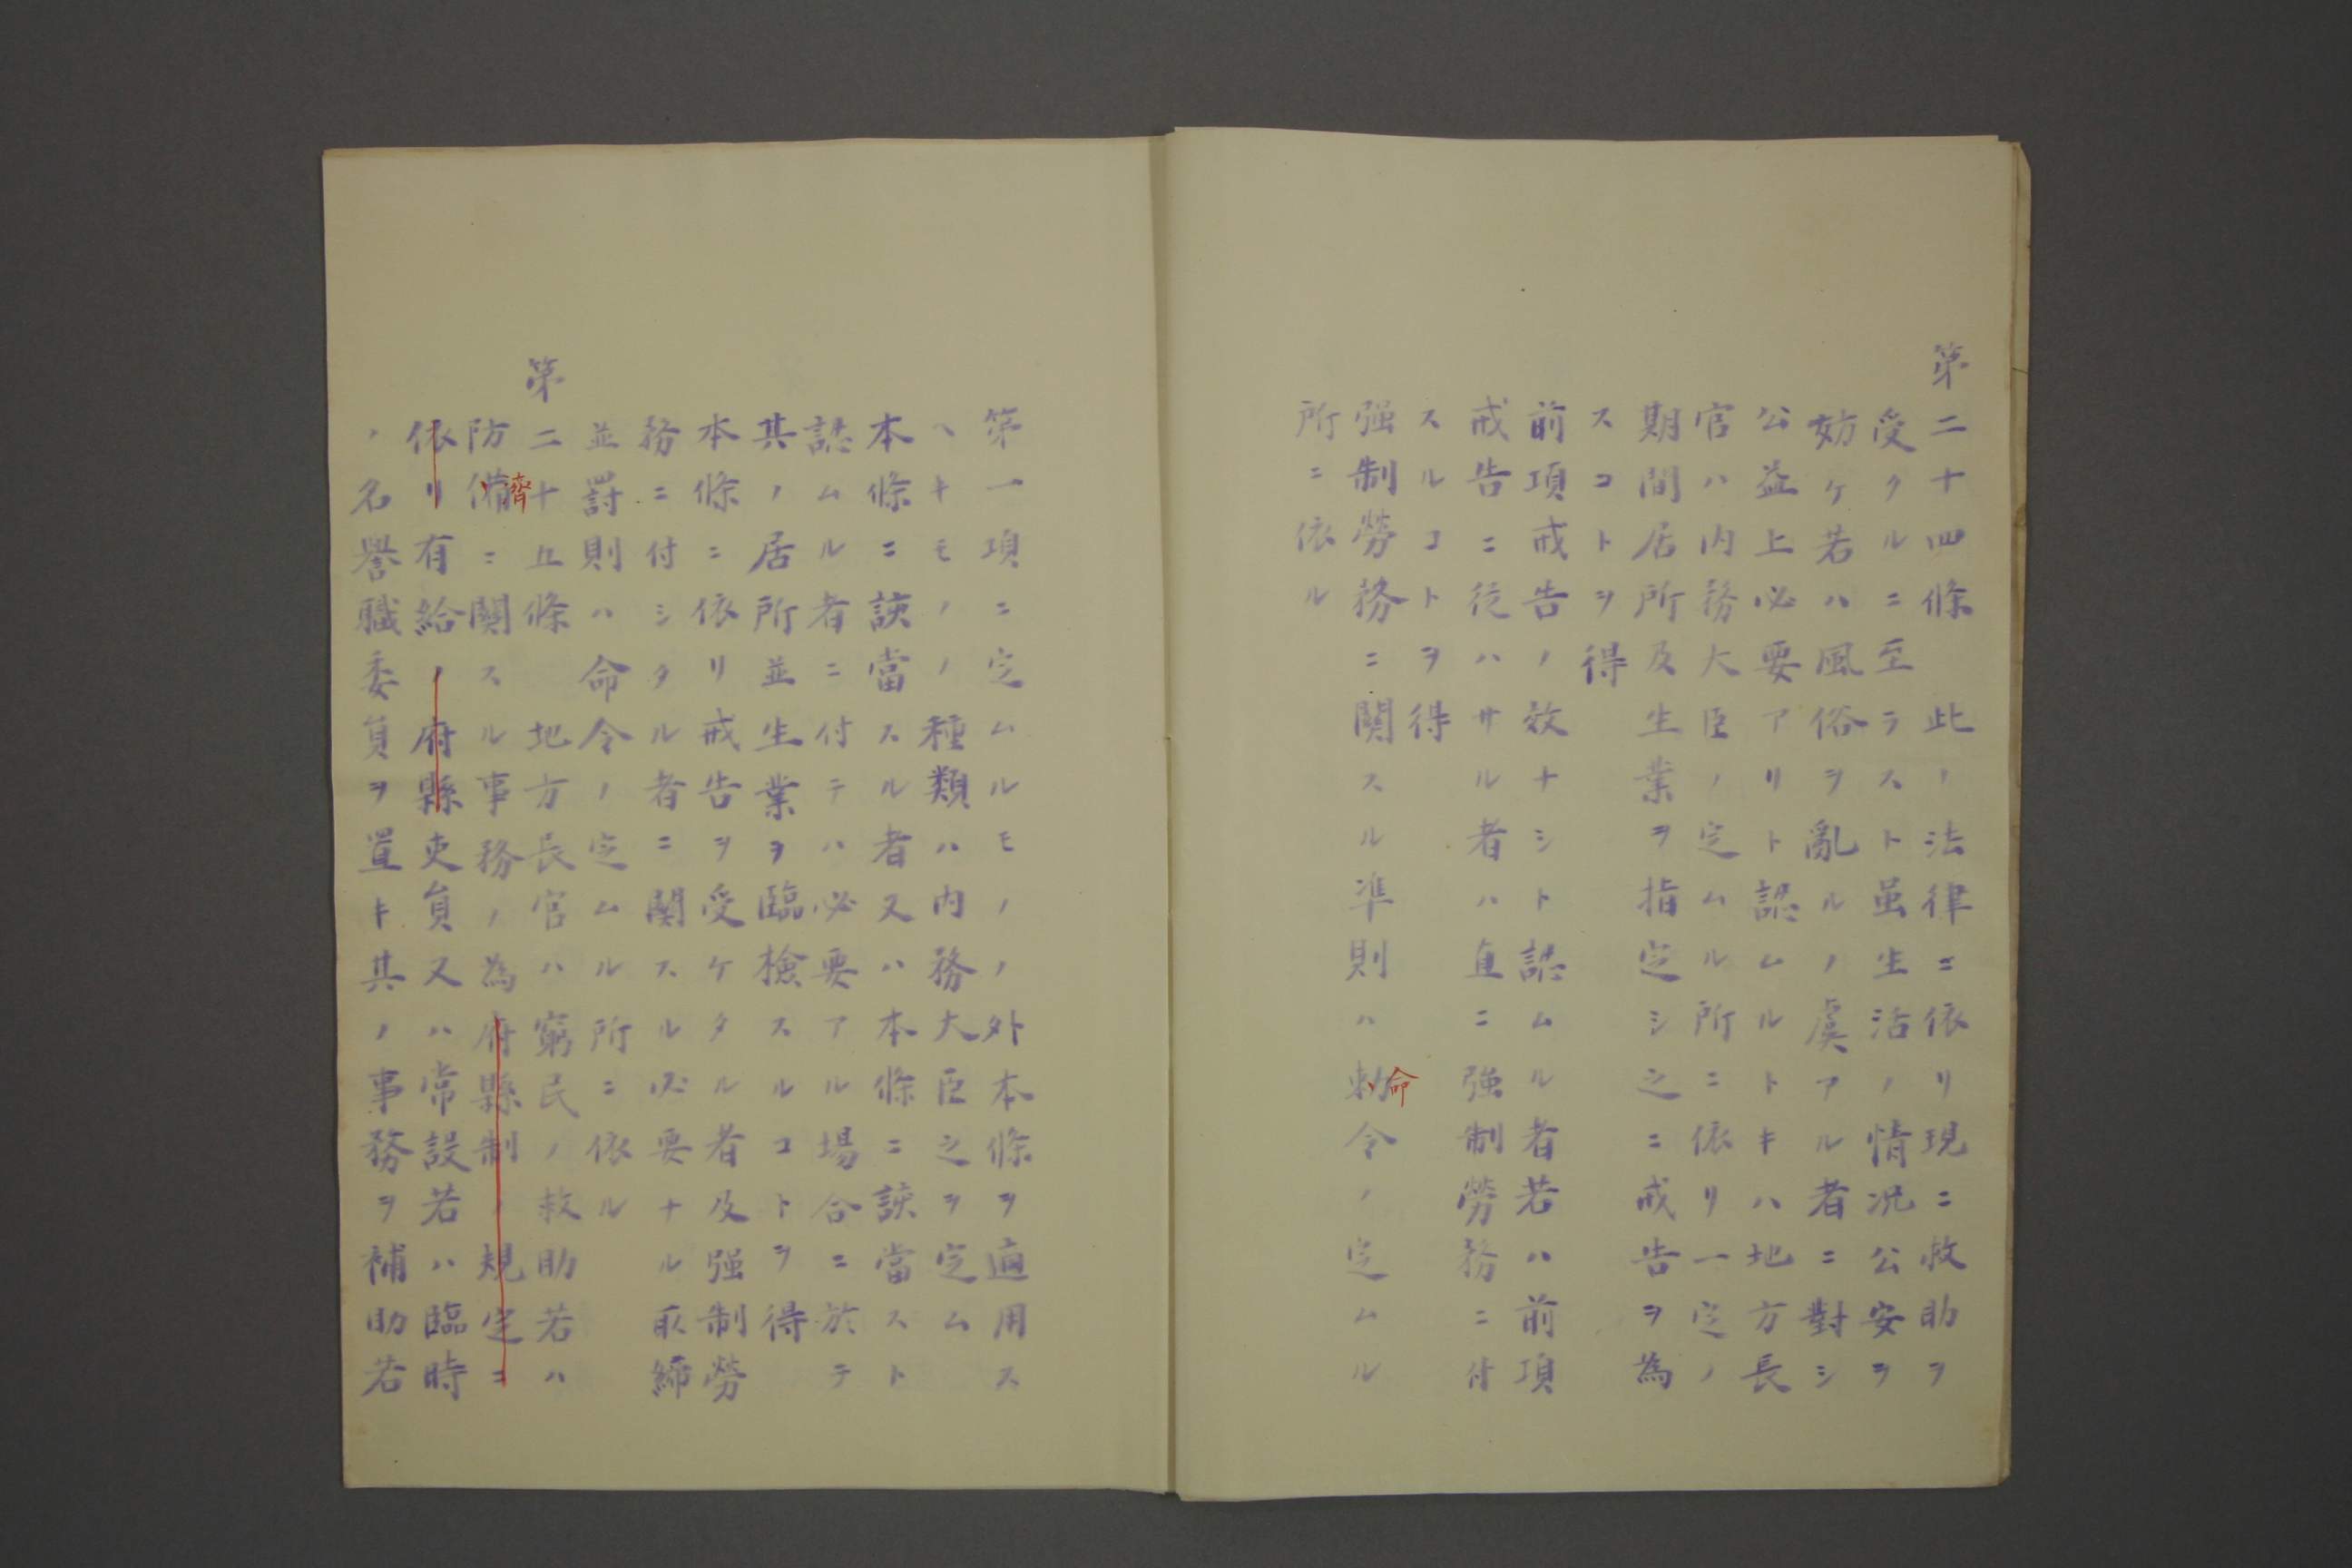 第二十四條　此ノ法律ニ依リ現ニ救助ヲ
受クルニ至ラスト虽生活ノ情況公安ヲ
妨ケ若ハ風俗ヲ亂ルノ虞アル者ニ對シ
公益上必要アリト認ムルトキハ地方長
官ハ内務大臣ノ定ムル所ニ依リ一定ノ
期間居所及生業ヲ指定シ之ニ戒告ヲ為
スコトヲ得
前項戒告ノ效ナシト認ムル者若ハ前項
戒告ニ從ハサル者ハ直ニ強制勞務ニ付
スルコトヲ得
强制勞務ニ関スル準則ハ勅令ノ定ムル
命
所ニ依ル
第一項ニ定ムルモノノ外本條ヲ適用ス
ヘキモノノ種類ハ内務大臣之ヲ定ム
本條ニ該當スル者又ハ本條ニ該當スト
認ムル者ニ付テハ必要アル場合ニ於テ
其ノ居所並生業ヲ臨檢スルコトヲ得
本條ニ依リ戒告ヲ受ケタル者及强制勞
務ニ付シタル者ニ関スル必要ナル取締
並罰則ハ命令ノ定ムル所ニ依ル
第二十五條　地方長官ハ窮民ノ救助若ハ
防備ニ関スル事務ノ為府縣制ノ規定ニ
濟
依リ有給ノ府縣吏員又ハ常設若ハ臨時
ノ名譽職委員ヲ置キ其ノ事務ヲ補助若